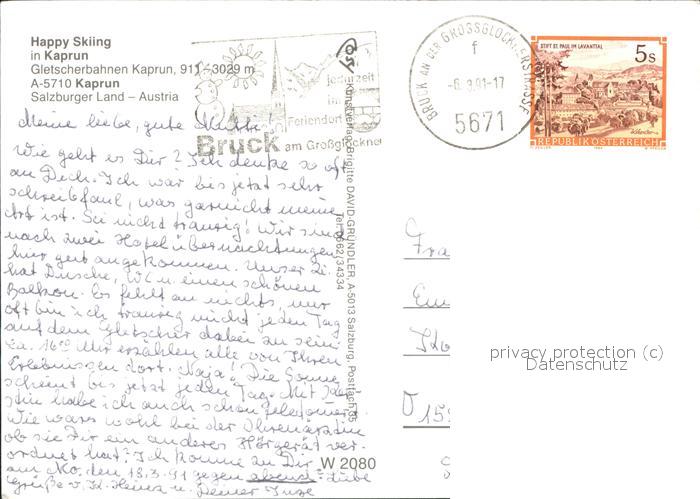 Happy Skiing
in Kaprun
Gletscherbahnen Kaprun, 911 - 3029 m
A-5710 Kaprun
Salzburger Land – Austria
jederzeit
Feriendorf
Bruck am Großglockner
BRUCK AN DER GROSSGLOCKNERSTRASSE
f
-6.3.91-17
5671
STIFT ST. PAUL IM LAVANTTAL
5 S
REPUBLIK ÖSTERREICH
Meine liebe, gute Mutti!
Wie geht es Dir? Ich denke so oft
an Dich. Ich war bis jetzt sehr
schreibfaul, was garnicht meine
Art ist. Sei nicht traurig! Wir sind
nach zwei Hotelübernachtungen
hier gut angekommen. Unser Zi.
hat Dusche, WC u. einen schönen
Balkon. Es fehlt an nichts, nur
oft bin ich traurig nicht jeden Tag
auf dem Gletscher dabei zu sein.
Ca. 16⁰⁰ Uhr erzählen alle von Ihren
Erlebnissen dort. Naja! Die Sonne
scheint bis jetzt jeden Tag. Mit
habe ich auch schon telefoniert.
Wie wars wohl bei der Ohrenärztin
ob sie Dir ein anderes Hörgerät ver-
ordnet hat? Ich komme zu Dir
am Mo. den 18.3.91 gegen abend. Liebe
Grüße v. K. Heinz u. Deiner Inge
Kunstverlag Brigitte DAVID-GRÜNDLER, A-5013 Salzburg, Postfach 35
Tel. 0662/34334
W 2080
Fra
Em
privacy protection (c)
Datenschutz